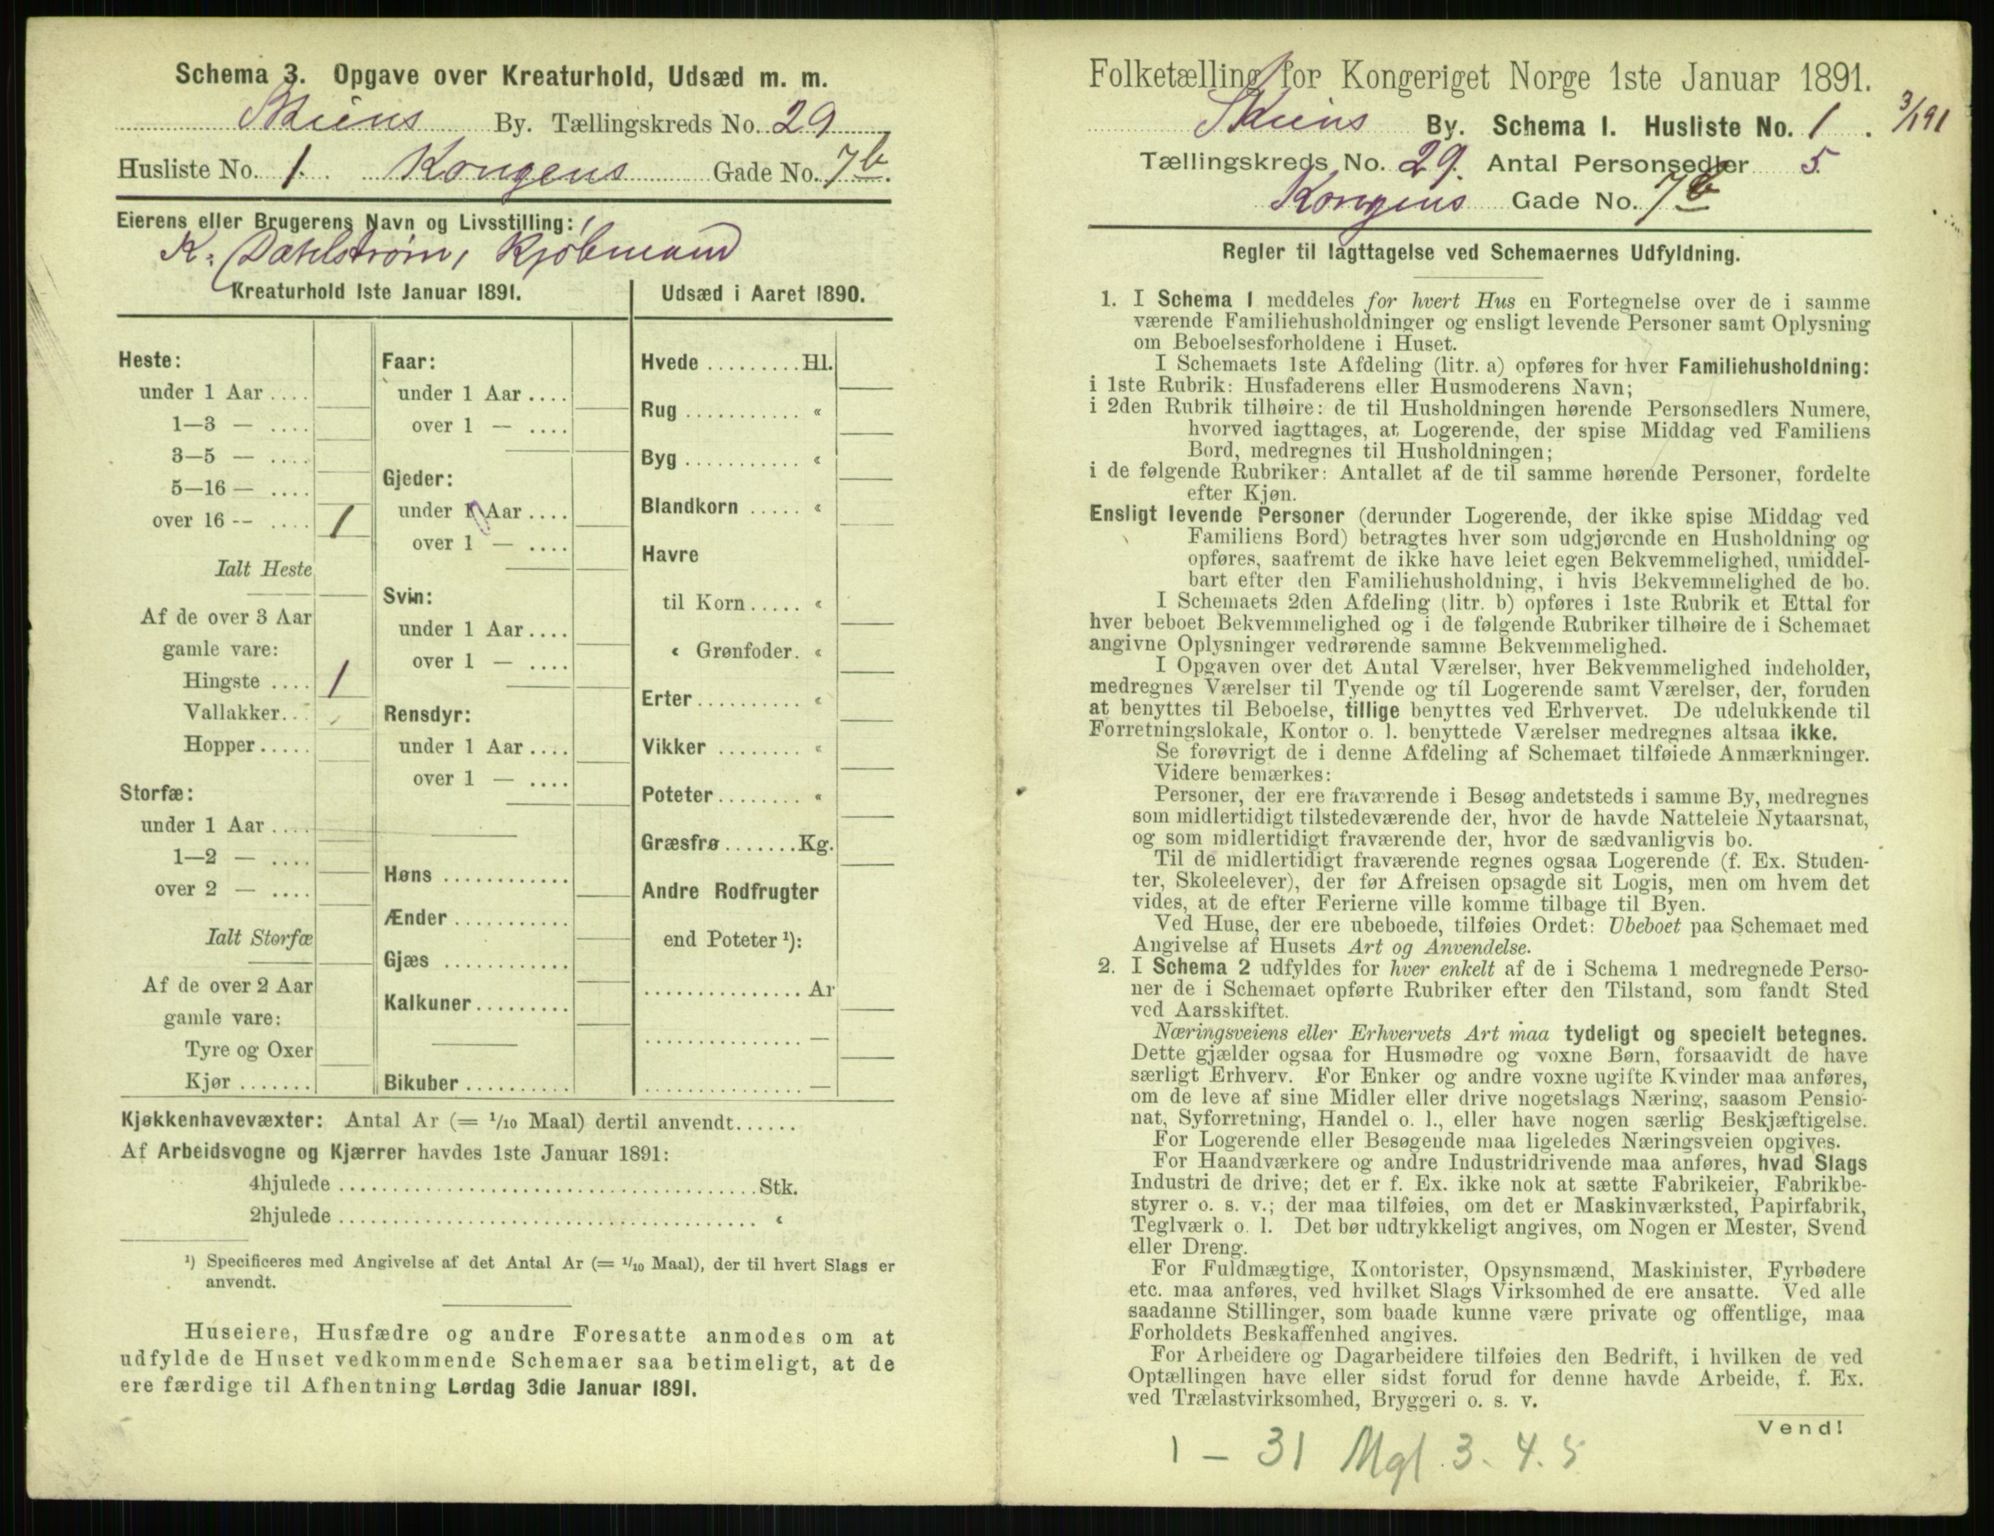 Schema 3. Opgave over Kreaturhold, Udsæd m. m.
Skiens By. Tællingskreds No. 29
Husliste No. 1. Kongens Gade No. 7b.
Eierens eller Brugerens Navn og Livsstilling:
K. Dahlstrøm, Kjøbmand
Kreaturhold 1ste Januar 1891.
Heste:
under 1 Aar ....
1—3 — ....
3—5 — ....
5—16 — ....
over 16 -- .... 1
Ialt Heste
Af de over 3 Aar
gamle vare:
Hingste .... 1
Vallakker...
Hopper.....
Storfæ:
under 1 Aar ....
1—2 — ....
over 2 — ....
Ialt Storfæ
Af de over 2 Aar
gamle vare:
Tyre og Oxer
Kjør .......
Faar:
under 1 Aar ....
over 1 — ....
Gjeder:
under 1 Aar ....
over 1 — ....
Svin:
under 1 Aar ....
over 1 — ....
Rensdyr:
under 1 Aar ....
over 1 — ....
Høns ............
Ænder ...........
Gjæs ............
Kalkuner.........
Bikuber ..........
Udsæd i Aaret 1890.
Hvede .........Hl.
Rug ........... «
Byg ........... «
Blandkorn ..... «
Havre
til Korn ..... «
« Grønfoder. «
Erter.......... «
Vikker ........ «
Poteter........ «
Græsfrø .......Kg.
Andre Rodfrugter
end Poteter ¹):
............... Ar
............... —
............... —
Kjøkkenhavevæxter: Antal Ar (= 1/10 Maal) dertil anvendt......
Af Arbeidsvogne og Kjærrer havdes 1ste Januar 1891:
4hjulede ........................................Stk.
2hjulede ........................................ «
¹) Specificeres med Angivelse af det Antal Ar (= 1/10 Maal), der til hvert Slags er
anvendt.
Huseiere, Husfædre og andre Foresatte anmodes om at
udfylde de Huset vedkommende Schemaer saa betimeligt, at de
ere færdige til Afhentning Lørdag 3die Januar 1891.
Folketælling for Kongeriget Norge 1ste Januar 1891.
Skiens By. Schema I. Husliste No. 1. 3/1 91
Tællingskreds No. 29. Antal Personsedler 5.
Kongens Gade No. 7b
Regler til Iagttagelse ved Schemaernes Udfyldning.
1. I Schema 1 meddeles for hvert Hus en Fortegnelse over de i samme
værende Familiehusholdninger og ensligt levende Personer samt Oplysning
om Beboelsesforholdene i Huset.
I Schemaets 1ste Afdeling (litr. a) opføres for hver Familiehusholdning:
i 1ste Rubrik: Husfaderens eller Husmoderens Navn;
i 2den Rubrik tilhøire: de til Husholdningen hørende Personsedlers Numere,
hvorved iagttages, at Logerende, der spise Middag ved Familiens
Bord, medregnes til Husholdningen;
i de følgende Rubriker: Antallet af de til samme hørende Personer, fordelte
efter Kjøn.
Ensligt levende Personer (derunder Logerende, der ikke spise Middag ved
Familiens Bord) betragtes hver som udgjørende en Husholdning og
opføres, saafremt de ikke have leiet egen Bekvemmelighed, umiddel-
bart efter den Familiehusholdning, i hvis Bekvemmelighed de bo.
I Schemaets 2den Afdeling (litr. b) opføres i 1ste Rubrik et Ettal for
hver beboet Bekvemmelighed og i de følgende Rubriker tilhøire de i Schemaet
angivne Oplysninger vedrørende samme Bekvemmelighed.
I Opgaven over det Antal Værelser, hver Bekvemmelighed indeholder,
medregnes Værelser til Tyende og til Logerende samt Værelser, der, foruden
at benyttes til Beboelse, tillige benyttes ved Erhvervet. De udelukkende til
Forretningslokale, Kontor o. l. benyttede Værelser medregnes altsaa ikke.
Se forøvrigt de i denne Afdeling af Schemaet tilføiede Anmærkninger.
Videre bemærkes:
Personer, der ere fraværende i Besøg andetsteds i samme By, medregnes
som midlertidigt tilstedeværende der, hvor de havde Natteleie Nytaarsnat,
og som midlertidigt fraværende der, hvor de sædvanligvis bo.
Til de midlertidigt fraværende regnes ogsaa Logerende (f. Ex. Studen-
ter, Skoleelever), der før Afreisen opsagde sit Logis, men om hvem det
vides, at de efter Ferierne ville komme tilbage til Byen.
Ved Huse, der ere ubeboede, tilføies Ordet: Ubeboet paa Schemaet med
Angivelse af Husets Art og Anvendelse.
2. I Schema 2 udfyldes for hver enkelt af de i Schema 1 medregnede Perso-
ner de i Schemaet opførte Rubriker efter den Tilstand, som fandt Sted
ved Aarsskiftet.
Næringsveiens eller Erhvervets Art maa tydeligt og specielt betegnes.
Dette gjælder ogsaa for Husmødre og voxne Børn, forsaavidt de have
særligt Erhverv. For Enker og andre voxne ugifte Kvinder maa anføres,
om de leve af sine Midler eller drive nogetslags Næring, saasom Pensio-
nat, Syforretning, Handel o. l., eller have nogen særlig Beskjæftigelse.
For Logerende eller Besøgende maa ligeledes Næringsveien opgives.
For Haandværkere og andre Industridrivende maa anføres, hvad Slags
Industri de drive; det er f. Ex. ikke nok at sætte Fabrikeier, Fabrikbe-
styrer o. s. v.; der maa tilføies, om det er Maskinværksted, Papirfabrik,
Teglværk o. l. Det bør udtrykkeligt angives, om Nogen er Mester, Svend
eller Dreng.
For Fuldmægtige, Kontorister, Opsynsmænd, Maskinister, Fyrbødere
etc. maa anføres, ved hvilket Slags Virksomhed de ere ansatte. Ved alle
saadanne Stillinger, som baade kunne være private og offentlige, maa
Forholdets Beskaffenhed angives.
For Arbeidere og Dagarbeidere tilføies den Bedrift, i hvilken de ved
Optællingen have eller sidst forud for denne havde Arbeide, f. Ex.
ved Trælastvirksomhed, Bryggeri o. s. v.
Vend!
1 – 31 Mgl. 3. 4. 5